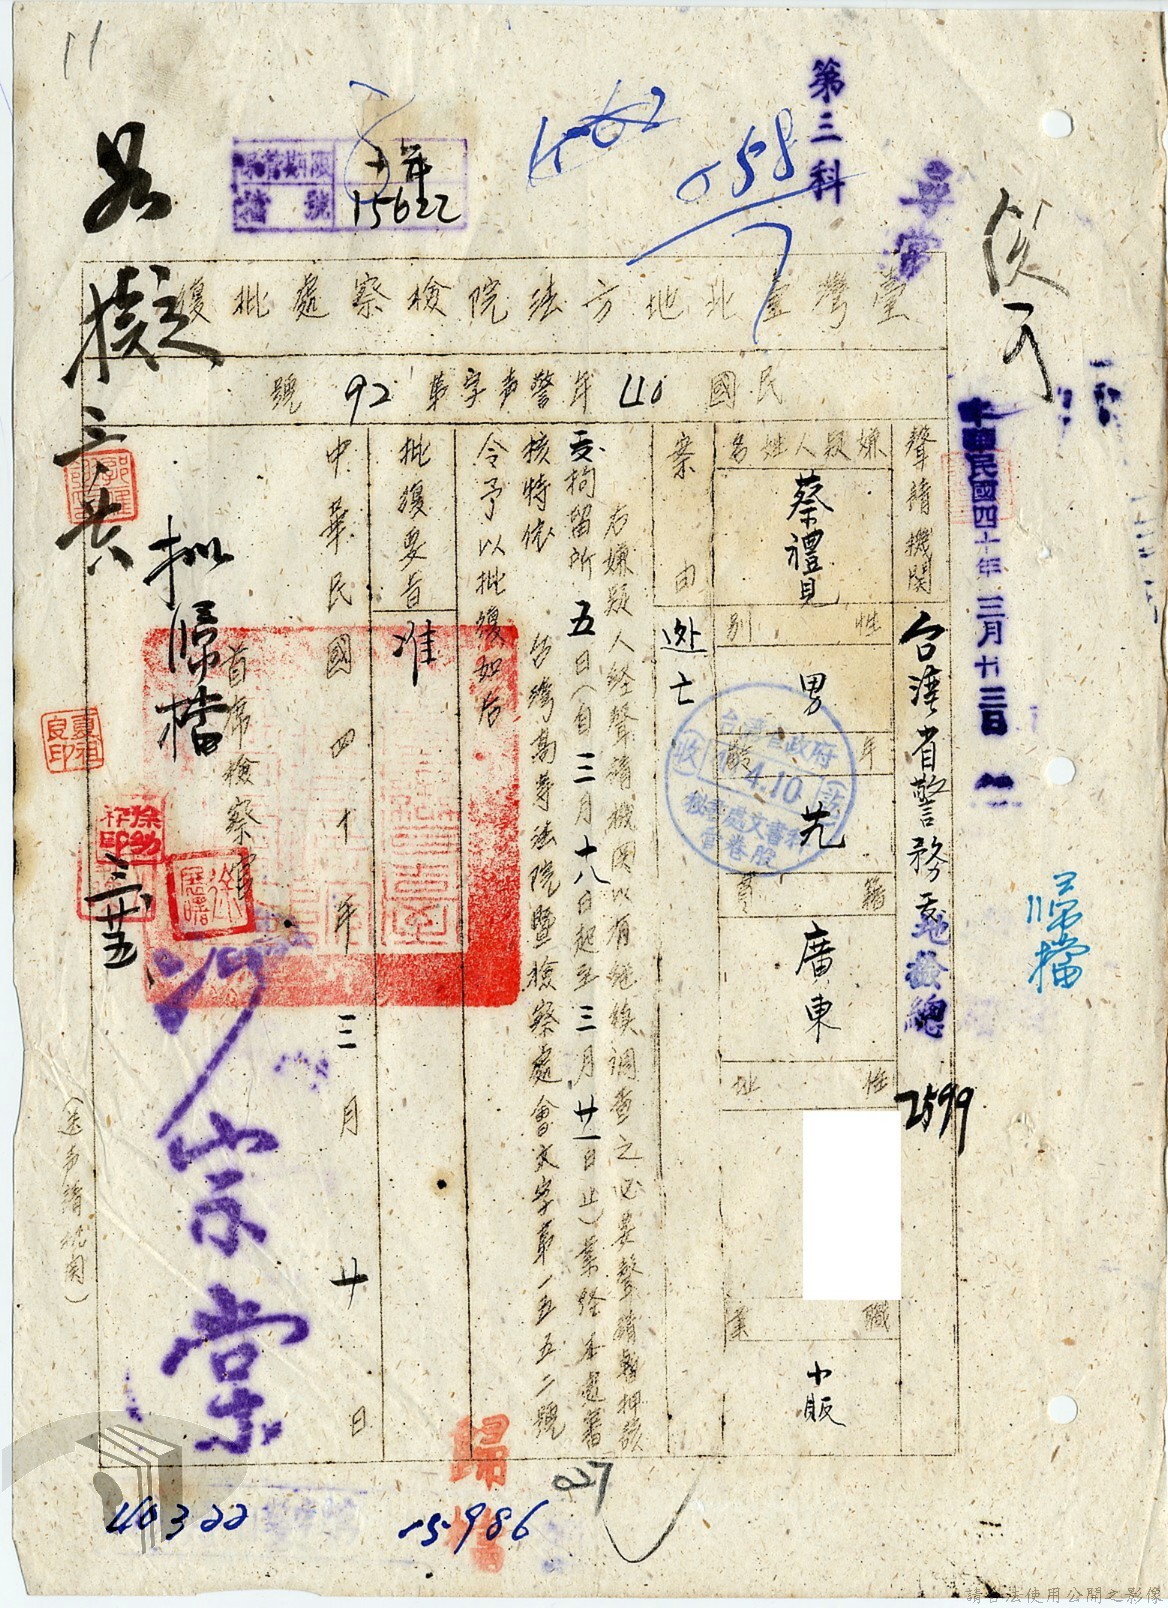 11
第三科
尋常
保管期限
十年
檔號
15622
058
臺灣臺北地方法院檢察處批復
民國40年警声字第92號
聲請機関
台湾省警務処
2599
中華民國四十年三月廿三日
嫌疑人姓名
蔡禮見
性別
男
年齡
籍貫
廣東
住址
職業
小販
案由
逊亡
右嫌疑人経聲請機関以有継續調査之必要聲請暫押該
処拘留所五日(自三月十八日起至三月廿二日止)業経本處審
核特依
台灣高等法院暨檢察處會文字第一五五二號
令予以批復如右
批復要旨
准
中華民國四十年三月廿日
首席檢察官
(送声請机関)
擬歸檔
歸檔
台灣省政府
4.10
秘書處文書科
管卷股
夏祖良印
歸檔
27
40322
15986
請合法使用公開之影像